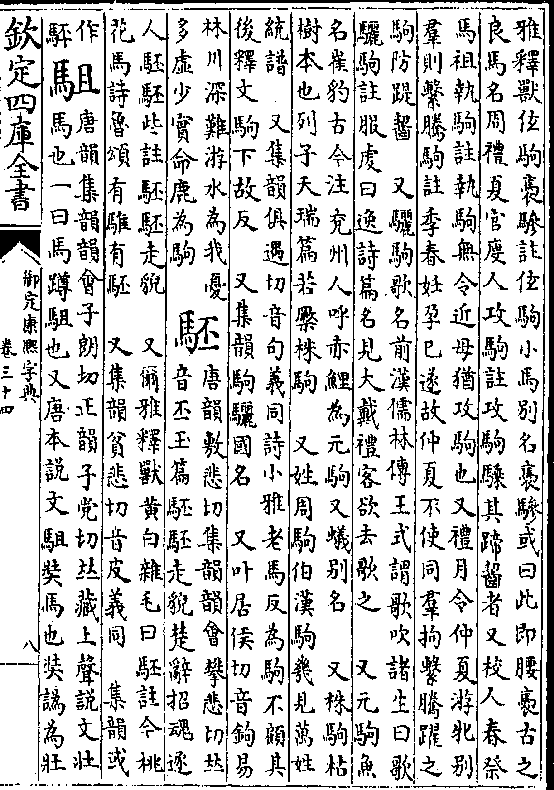 雅釋獸伭駒褭驂註伭駒小馬別名褭驂或曰此即腰褭古之
良馬名周禮夏官廋人攻駒註攻駒騬其蹄齧者又校人春祭
馬祖執駒註執駒無令近母猶攻駒也又禮月令仲夏游牝別
羣則縶騰駒註季春妊孕巳遂故仲夏不使同羣拘縶騰躍之
駒防踶齧 又驪駒歌名前漢儒林傳王式謂歌吹諸生曰歌
驪駒註服虔曰逸詩篇名見大戴禮客欲去歌之 又元駒魚
名崔豹古今注兖州人呼赤鯉為元駒又蟻別名 又株駒枯
樹本也列子天瑞篇若橜株駒 又姓周駒伯漢駒幾見萬姓
統譜 又集韻俱遇切音句義同詩小雅老馬反為駒不顧其
後釋文駒下故反 又集韻駒驪國名 又叶居侯切音鉤易
林川深難游水為我憂
多虛少實命鹿為駒 駓 唐韻敷悲切集韻韻會攀悲切𠀤
音丕玉篇駓駓走貌楚辭招魂逐
人駓駓些註駓駓走貌 又爾雅釋獸黄白雜毛曰駓註今桃
花馬詩魯頌有騅有駓 又集韻貧悲切音皮義同 集韻或
作
駍 駔 唐韻集韻韻會子朗切正韻子党切𠀤藏上聲說文壯
馬也一曰馬蹲駔也又唐本說文駔奘馬也奘譌為壯
欽定四庫全書
御定康熙字典
卷三十四
八